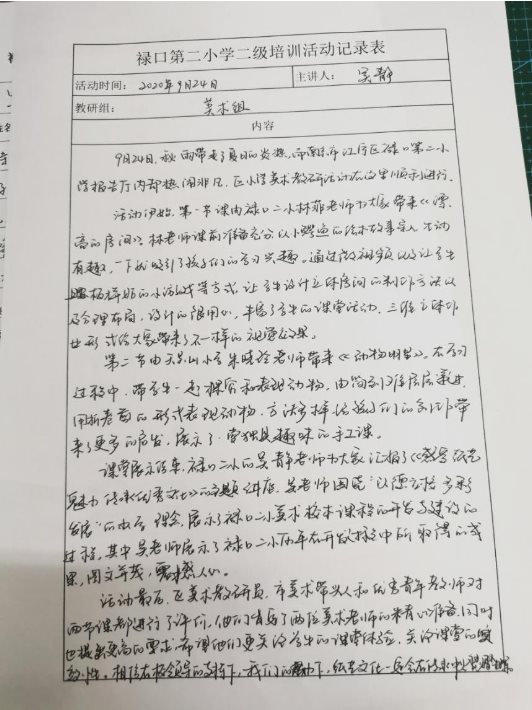 禄口第二小学二级培训活动记录表
活动时间: 2020年9月24日 主讲人: 吴静
教研组: 美术组
内容
9月24日,秋雨带走了夏日的炎热,南京市江宁区禄口第二小
学报告厅内却热闹非凡,区小学美术教研活动在这里顺利进行。
活动伊始,第一节课由禄口二小林菲老师为大家带来《漂
亮的房间》。林老师课前准备充分,以小鳄鱼的绘本故事导入,生动
有趣,一下就吸引了孩子们的学习兴趣。通过微视频以及让学生
的小游戏等方式,让学生设计立体房间的制作方法以
及合理布局,设计的很用心,丰富了学生的课堂活动,三维立体作
业形式给大家带来了不一样的视觉效果。
第二节由天景山小学朱晓玲老师带来《动物明星》。在学习
过程中,带学生一起探究和表现动物,由简到难层层递进,
用的形式表现动物,方法多样,给孩子们的创作带
来了更多的启发,展示了一堂独具趣味的手工课。
课堂展示结束,禄口二小的吴静老师为大家汇报了《纸艺
魅力 传承优秀文化》的专题讲座,吴老师围绕“以德立校 多彩
发展”的办学理念,展示了禄口二小美术校本课程的开发与建设的
过程,其中吴老师展示了禄口二小两年在开放探究中所取得的成
果,图文并茂,震撼人心。
活动最后,区美术教研员、市美术带头人和优秀青年教师对
两节课都进行了评价,他们肯定了两位美术老师的精心准备,同时
也提出更高的要求,希望他们更关注学生的课堂体验,关注课堂的实
效性。相信在校领导的支持下,我们的努力下,纸艺文化一定会在